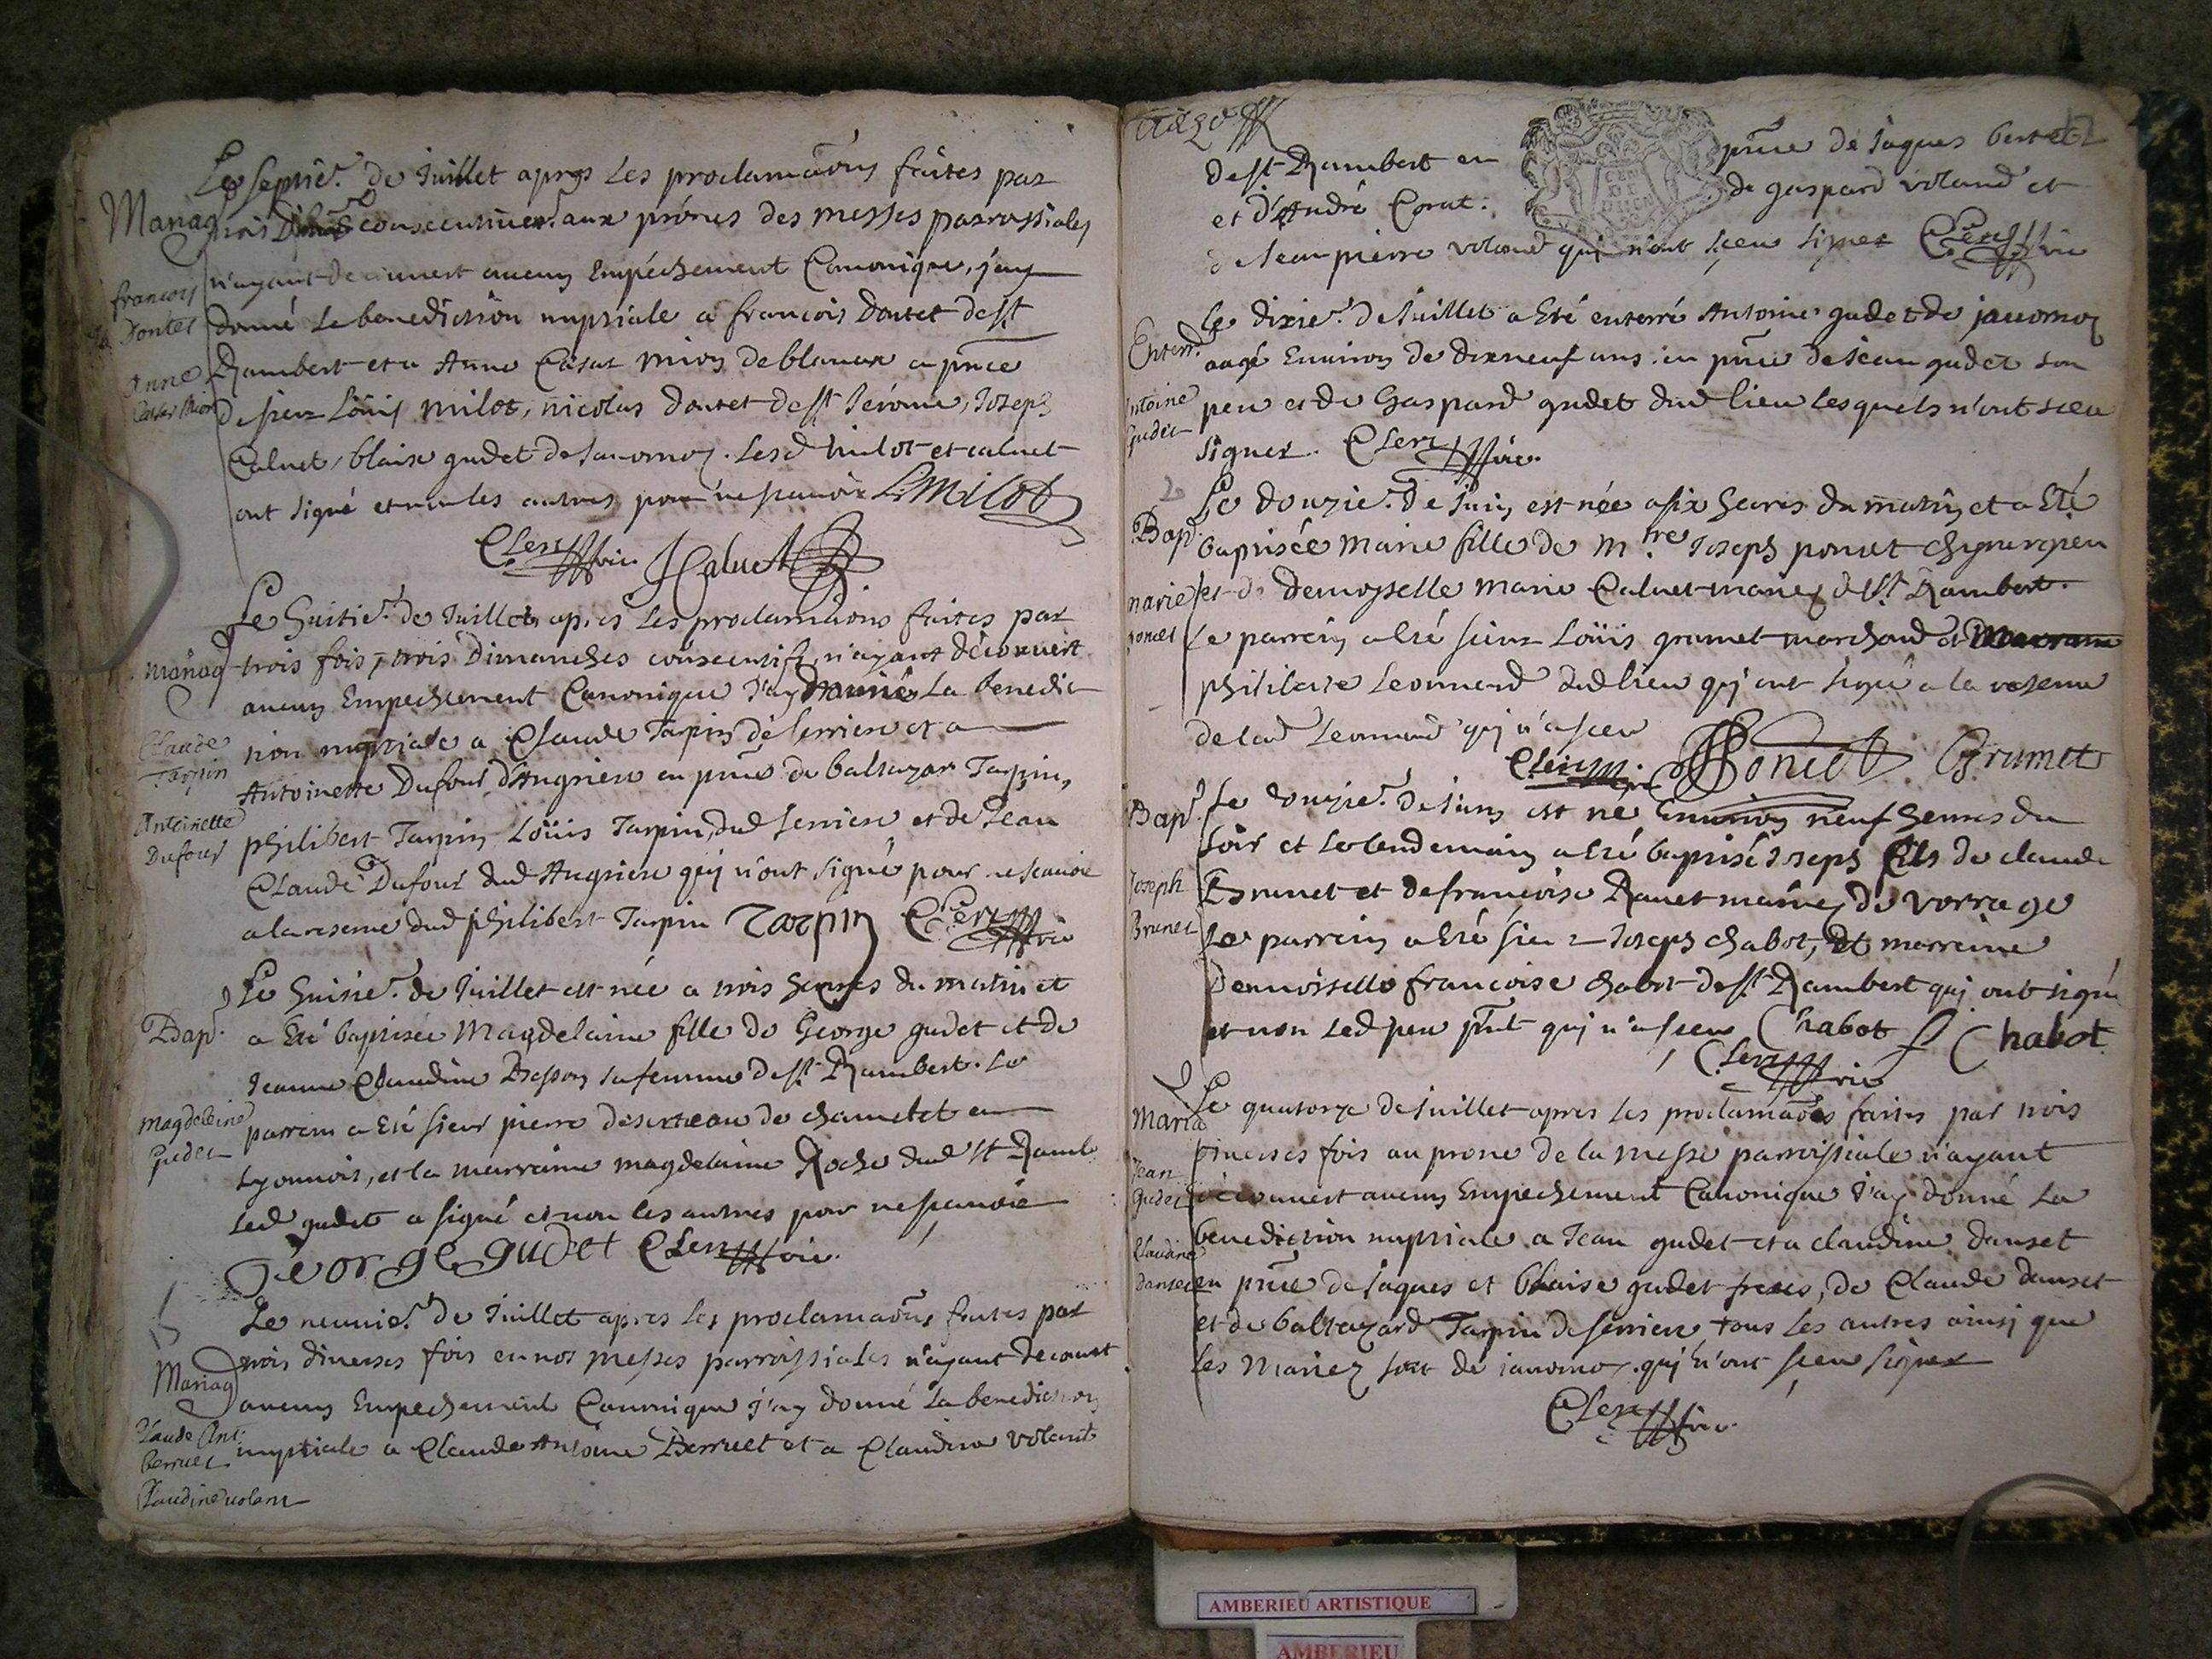 Le septie. de Juillet apres les proclamaôns faites par
Mariag trois consecutivem. aux prônes des messes parrossiales
n'ayant decouvert aucun Empéchement Canonique, j'ay
francois Doutet
donné la benediction nuptiale a francois Doutet de st
Anne
Rambert et a Anne Casar mion de blanax en pnce
de sieur Loüis milot, nicolas doutet de st Jérome, Joseph
Caluet, blaise gudet de Jauornoz. Lesd milot et caluet
ont signé et non les autres pour ne scauoir LMilot
Clerc vic. JCaluet
Le huitie. de Juillet apres les proclamaôns faites par
Mariag trois fois, trois Dimanches consecutifs, n'ayant découvert
aucun Empechement Canonique J'ay donné La benedic
Claude Tarpin
tion nuptiale a Claude Tarpin de serriere et a
Antoinette Dufour d'Angriere en pnce de baltazar Tarpin,
Antoinette Dufour
philibert Tarpin Loüis Tarpin, dud serriere et de Jean
Claude Dufour dud Angriere qui n'ont signé pour ne scauoir
a la reserue dud philibert Tarpin Tarpin Clerc vic
Le huitie. de Juillet est née a trois heures du matin et
Bap. a Eté baptisée Magdelaine fille de George gudet et de
Jeanne Claudine Besson sa femme de st Rambert. Le
magdeleine Gudet
parrein a Eté sieur pierre deserteau de chamelet en
Lyonnois, et la marraine magdelaine Roche dud st Ramb
Led gudet a signé et non les autres pour ne scauoir
George gudet Clerc vic.
Le neuuie. de Juillet apres les proclamaôns faites par
trois diuerses fois en nos messes parroissiales n'ayant decouvert
Mariag
aucun Empechement Canonique J'ay donné La benediction
Claude Ant. Berruet
nuptiale a Claude Antoine Berruet et a Claudine Volant
Claudine uolant
de st Rambert en pnce de Jaques bertet
et d'André Corat. de gaspard voland et
de Jean pierre voland qui n'ont sçeu signer Clerc vic
Le dixie. de Juillet a Eté enterré Antoine gudet de jauornoz
Enterr.
aagé Enuiron de dixneuf ans. en pnce de Jean gudet son
Antoine Gudet
pere et de Gaspard gudet dud lieu lesquels n'ont sceu
signer. Clerc vic.
Le douzie. de Juin est née a six heures du matin et a Eté
Bap. baptisée Marie fille de Mtre Joseph poncet
marie poncet
et de demoyselle Marie Caluet mariez de st Rambert.
Le parrein a Eté sieur Loüis grumet marchand et Marraine
philiberte Leonnard dud lieu qui ont signé a la reserue
de lad Leonnard qui n'a sceu
Clerc Poncet Grumet
Bap. Le douzie. de Juin est né Enuiron neuf heures du
soir et le lendemain a Eté baptisé Joseph fils de claude
Joseph Brunet
Brunet et de francoise Rauet mariez de Vorrage
Le parrein a Eté sieur Joseph chabot, Et marreine
Demoiselle francoise chabot de st Rambert qui ont signé
et non led pere pnt qui n'a sceu Chabot f Chabot
Clerc vic
Le quatorze de Juillet apres les proclamaôns faites par trois
Maria
diuerses fois au prone de la Messe parroissiale n'ayant
Jean Gudet
découuert aucun Empechement Canonique J'ay donné la
benediction nuptiale a Jean gudet et a claudine danset
Claudine Danset
en pnce de Jaques et blaise gudet freres, de Claude danset
et de baltazard Tarpin de serriere tous les autres ainsi que
les Mariez sont de jauornoz. qui n'ont sceu signer
Clerc vic.
AMBERIEU ARTISTIQUE
AMBERIEU